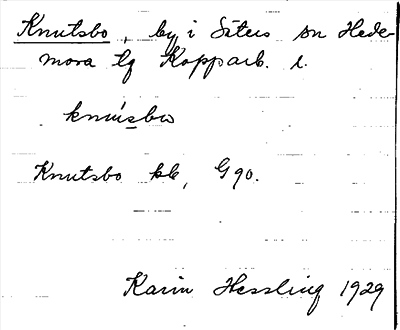 Knutsbo, by i Säters sn Hede-
mora tg Kopparb. l.
knusbo
Knutsbo kb, G 90.
Karin Hessling 1929